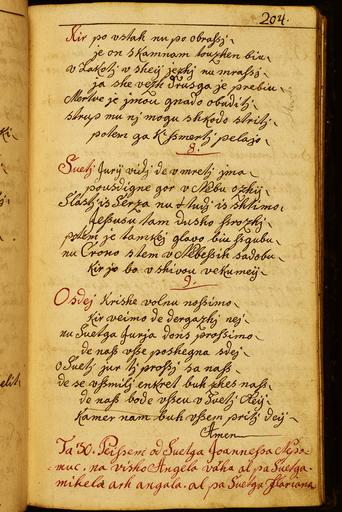 204.
Kir po vstak nu po obrassj
je on skamnam touzhen biu
v Lakotj v sheij jezhj nu mrassj
ja she vezh drusga je prebiu
Mertve je jmou gnado obuditj
strup mu nj mogu shkodo stritj
potem ga k smertj pelajo
8.
Suetj Jurij vidj de vmretj jma
pousdigne gor v Nebu ozhij
Slastj is Serza nu
Jessusu tam dusho jsrozhj
potem je tamkej glavo biu sgubu
nu Crono stem v Nebessih sadobu
kir jo bo vshivou vekumeij
9.
Osdej kriske volnu nossimo
kir veimo de dergazhj nej
nu Suetga Jurja dons prossimo
de nass vsse poshegna sdej
o Suetj jurj tj prossj sa nass
de se vssmilj enkret buh zhes nass
de nass bode vseu v Suetj Reij
kamer nam buh vssem pritj deij
Amen
Ta 50. Peissem od Suetga Joannessa Nepo-
muc. na visho Angela váha al pa Suetga
mihela arhangela. al pa Suetga Floriana